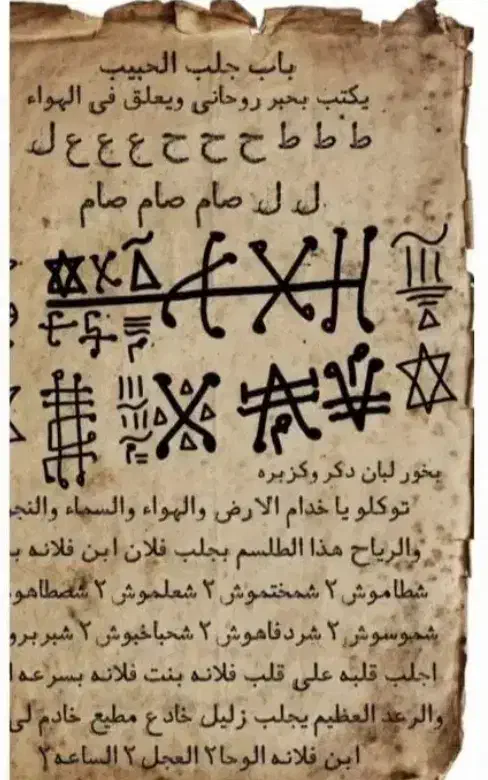 باب جلب الحبيب
يكتب بحبر روحانى ويعلق فى الهواء
ط ط ط ح ح ح ع ع ع ل
ل ل صام صام صام
بخور لبان دكر وكزبره
توكلو يا خدام الارض والهواء والسماء والنجو
والرياح هذا الطلسم بجلب فلان ابن فلانه ب
شطاموش ٢ شمختموش ٢ شعلموش ٢ شصطاهو
شموسوش ٢ شردفاهوش ٢ شحباخبوش ٢ شبربرو
اجلب قلبه على قلب فلانه بنت فلانه بسرعه ا
والرعد العظيم يجلب زليل خادع مطيع خادم لى
ابن فلانه الوحا٢ العجل ٢ الساعه٢